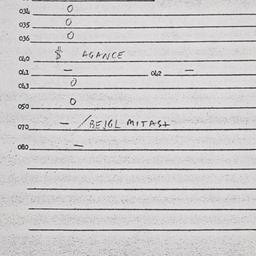 034 0
035 0
036 0
040 $ AGANCE
041 — 042 —
043 0
050 0
070 — /BEJGL MITAS+
080 —